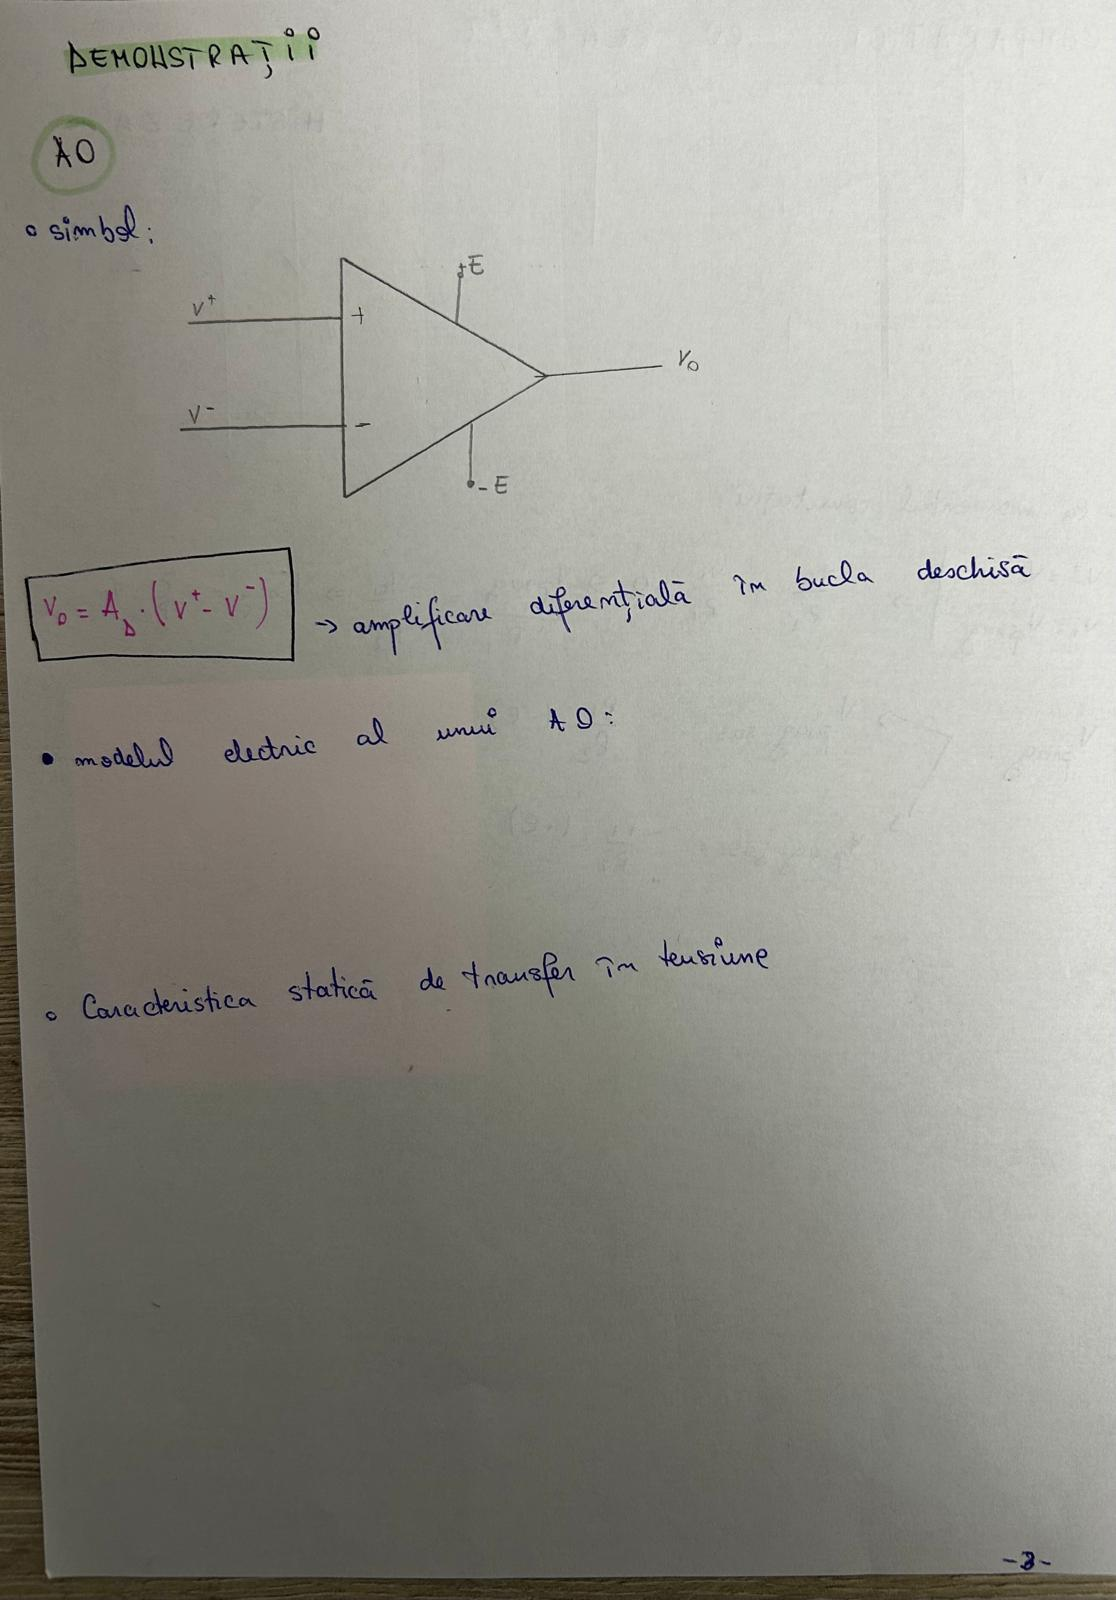 DEMONSTRAȚII
AO
simbol:
+E
V⁺
+
V₀
V⁻
-
-E
V₀ = A_D · (V⁺ - V⁻) → amplificare diferențială în bucla deschisă
• modelul electric al unui AO:
Caracteristica statică de transfer în tensiune
-3-